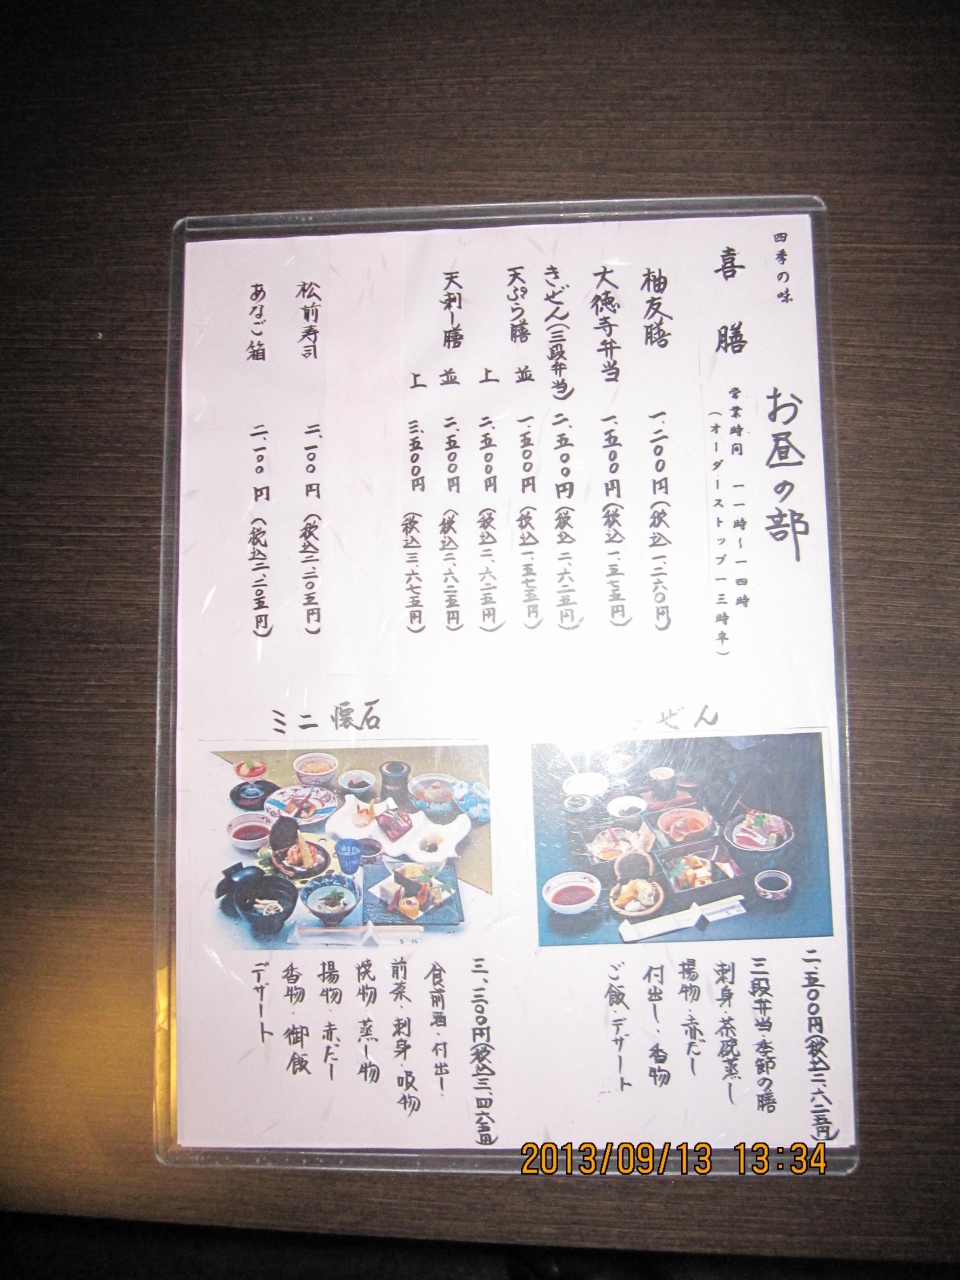 四季の味
喜膳
お昼の部
営業時間 一一時〜一四時
(オーダーストップ一三時半)
柚友膳 一、二〇〇円(税込一、二六〇円)
大徳寺弁当 一、五〇〇円(税込一、五七五円)
きぜん(三段弁当) 二、五〇〇円(税込二、六二五円)
天ぷら膳 並 一、五〇〇円(税込一、五七五円)
上 二、五〇〇円(税込二、六二五円)
天刺し膳 並 二、五〇〇円(税込二、六二五円)
上 三、五〇〇円(税込三、六七五円)
松前寿司 二、一〇〇円(税込二、二〇五円)
あなご箱 二、一〇〇円(税込二、二〇五円)
きぜん
二、五〇〇円(税込二、六二五円)
三段弁当・季節の膳
刺身・茶碗蒸し
揚物・赤だし
付出し・香物
ご飯・デザート
ミニ懐石
三、三〇〇円(税込三、四六五円)
食前酒・付出し・
前菜・刺身・吸物
焼物・蒸し物
揚物・赤だし
香物・御飯
デザート
2013/09/13 13:34